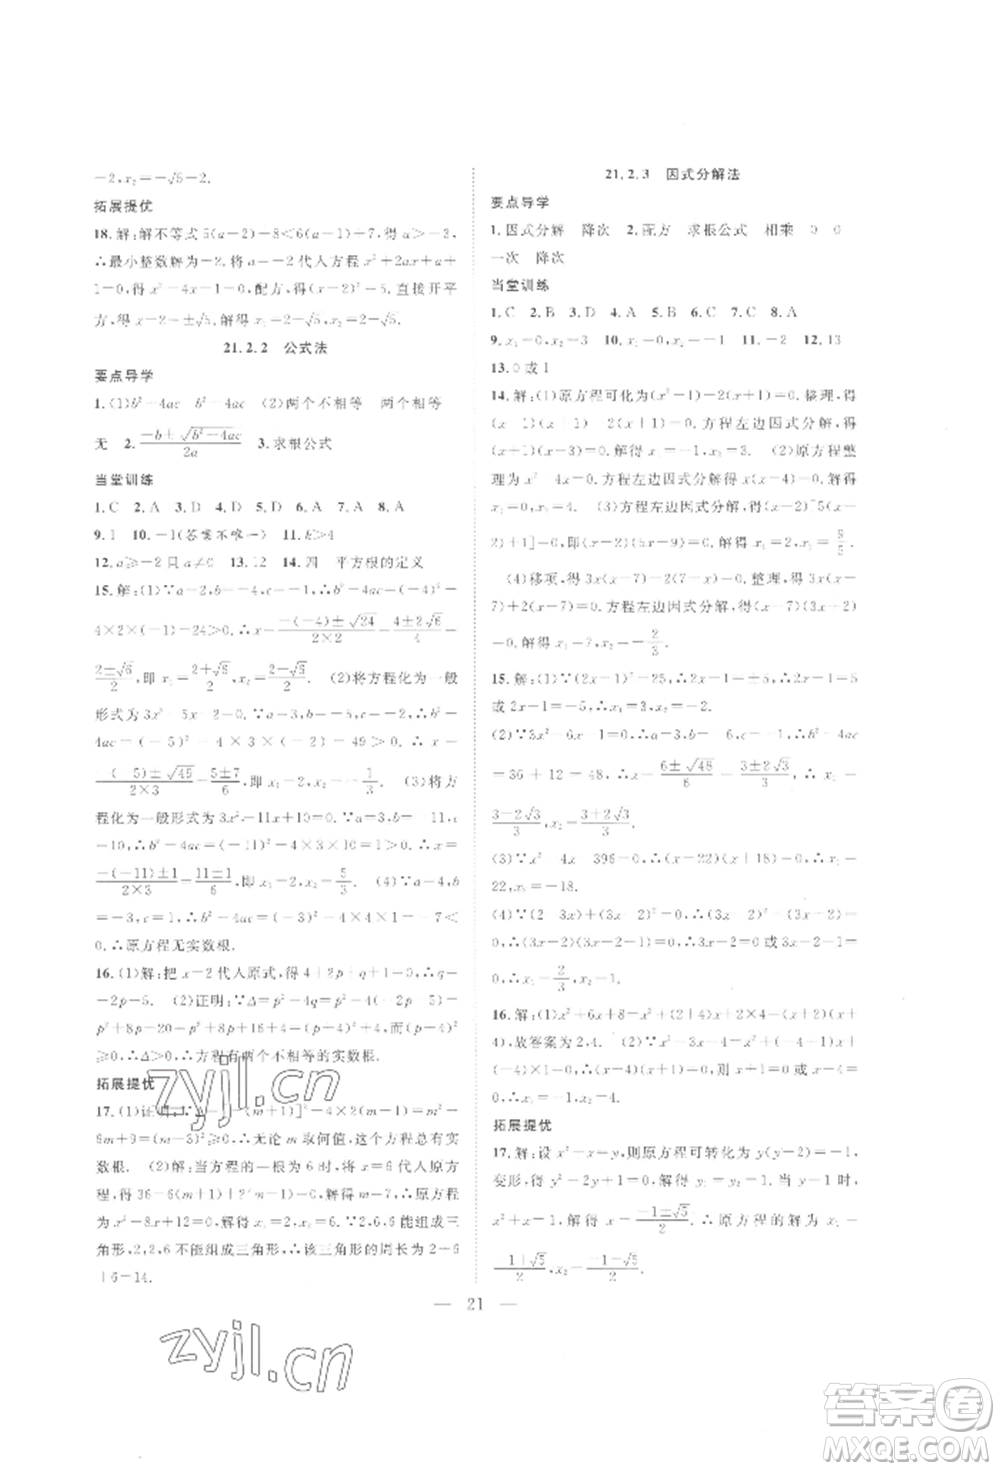 -2,x₂=-√5-2.
拓展提优
18.解:解不等式 5(a-2)-8<6(a-1)+7,得 a>-3,
∴最小整数解为-2.将 a=-2代入方程 x²+2ax+
1=0,得 x²-4x-1=0,配方,得(x-2)²=5.直接开平
方,得 x-2=±√5.解得 x₁=2+√5,x₂=2-√5.
21.2.2 公式法
要点导学
1.(1)b²-4ac b²-4ac (2)两个不相等 两个相等
无 2.(-b±√(b²-4ac))/2a 3.求根公式
当堂训练
1.C 2.A 3.D 4.D 5.D 6.A 7.D 8.A
9.1 10.-1(答案不唯一) 11.b>4
12.a≥-2且a≠0 13.12 14.四 平方根的定义
15.解:(1)∵a=2,b=-4,c=-1,∴b²-4ac=(-4)²-
4×2×(-1)=24>0.∴x=(-(-4)±√24)/(2×2)=(4±2√6)/4=
(2±√6)/2,即 x₁=(2+√6)/2,x₂=(2-√6)/2. (2)将方程化为一般
形式为 3x²-5x-2=0.∵a=3,b=-5,c=-2,∴b²-
4ac=(-5)²-4×3×(-2)=49>0.∴x=
(-(-5)±√49)/(2×3)=(5±7)/6,即 x₁=2,x₂=-1/3. (3)将方
程化为一般形式为 3x²-11x+10=0.∵a=3,b=-11,c
=10,∴b²-4ac=(-11)²-4×3×10=1>0.∴x=
(-(-11)±√1)/(2×3)=(11±1)/6,即 x₁=2,x₂=5/3. (4)∵a=4,b
=-3,c=1,∴b²-4ac=(-3)²-4×4×1=-7<
0.∴原方程无实数根.
16.(1)解:把 x=2代入原式,得 4+2p+q=-1,∴q=
-2p-5. (2)证明:∵Δ=p²-4q=p²-4(-2p-5)=
p²+8p+20=p²+8p+16+4=(p+4)²+4,而(p+4)²
≥0,∴Δ>0,∴方程有两个不相等的实数根.
拓展提优
17.(1)证明:∵Δ=[-(m+1)]²-4×2(m-1)=m²-
6m+9=(m-3)²≥0,∴无论 m 取何值,这个方程总有实
数根. (2)解:当方程的一个根为 6 时,将 x=6 代入方
程,得 36-6(m+1)+2(m-1)=0,解得 m=7,∴原方程
为 x²-8x+12=0,解得 x₁=2,x₂=6.∵2,6,6能组成三
角形,2,2,6不能组成三角形,∴该三角形的周长为2+6
+6=14.
21.2.3 因式分解法
要点导学
1.因式分解 降次 2.配方 求根公式 相乘 0 0
一次 降次
当堂训练
1.C 2.B 3.D 4.A 5.A 6.B 7.C 8.A
9.x₁=0,x₂=-3 10.x₁=3,x₂=9 11.2 12.13
13.0 或 1
14.解:(1)原方程可化为(x²-1)-2(x+1)=0.整理,得
(x+1)(x-1)-2(x+1)=0.方程左边因式分解,得
(x+1)(x-3)=0.解得 x₁=-1,x₂=3. (2)原方程整
理为 x²-4x=0.方程左边因式分解得 x(x-4)=0.解得
x₁=0,x₂=4. (3)方程左边因式分解得[(x-7)+(3x
-2)+1]=0,即(x-9)(5x-9)=0.解得 x₁=9,x₂=9/5.
(4)移项,得 3x(x-7)+2(x-7)=0.提公因式,得(x-
7)(3x+2)=0.方程左边因式分解,得(x-7)(3x+2)
=0.解得 x₁=7,x₂=-2/3.
15.解:(1)∵(2x-1)²=25,∴2x-1=±5.∴2x-1=5
或 2x-1=-5.∴x₁=3,x₂=-2.
(2)∵3x²-6x-1=0,∴a=3,b=-6,c=-1.∴b²-4ac
=36+12=48,∴x=(6±√48)/6=(3±2√3)/3,∴x₁=
(3-2√3)/3,x₂=(3+2√3)/3.
(3)∵x²-4x-396=0,∴(x-22)(x+18)=0.∴x₁=
22,x₂=-18.
(4)∵(2-3x)+(3x-2)²=0,∴(3x-2)²-(3x-2)
=0.∴(3x-2)(3x-3)=0.∴3x-2=0或 3x-3=0.
∴x₁=2/3,x₂=1.
16.解:(1)x²+6x+8=x²+(2+4)x+2×4=(x+2)(x+
4),故答案为 2,4. (2)∵x²-3x-4=0,∴(x+1)(x-
4)=0,∴x+1=0或 x-4=0,∴x₁=-1,x₂=4.
拓展提优
17.解:设 x²-x=y,则原方程可转化为 y(y-2)=-1,
变形,得 y²-2y+1=0,解得 y₁=y₂=1.当 y=1 时,
x²-x=1,解得 x=(1±√5)/2.∴原方程的解为 x₁=
(1+√5)/2,x₂=(1-√5)/2.
— 21 —
zyjl.cn
zyjl.cn
答案圈
MXQE.COM